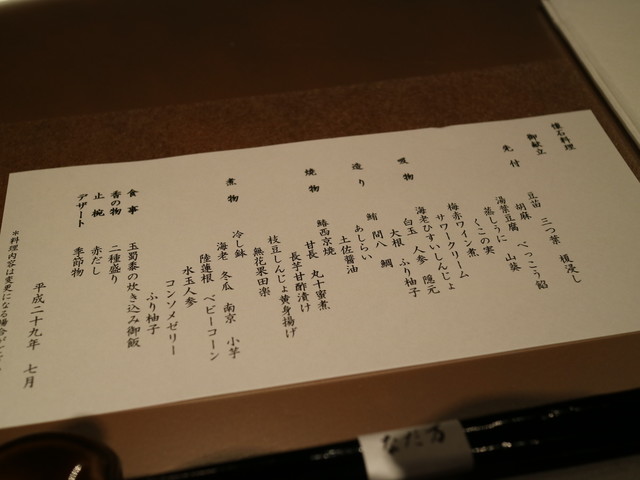 懐石料理
御献立
先付
豆苗 三つ葉 榎浸し
胡麻 べっこう餡
湯葉豆腐 山葵
蒸しうに
くこの実
梅赤ワイン煮
サワークリーム
吸物
海老ひすいしんじょ
白玉 人参 隠元
大根 ふり柚子
造り
鮪 間八 鯛
あしらい
土佐醤油
焼物
鰆西京焼
甘長 丸十蜜煮
長芋甘酢漬け
枝豆しんじょ黄身揚げ
無花果田楽
煮物
冷し鉢
海老 冬瓜 南京 小芋
陸蓮根 ベビーコーン
水玉人参
コンソメゼリー
ふり柚子
食事
玉蜀黍の炊き込み御飯
香の物
二種盛り
止椀
赤だし
デザート
季節物
平成二十九年 七月
*料理内容は変更になる場合が
なだ万